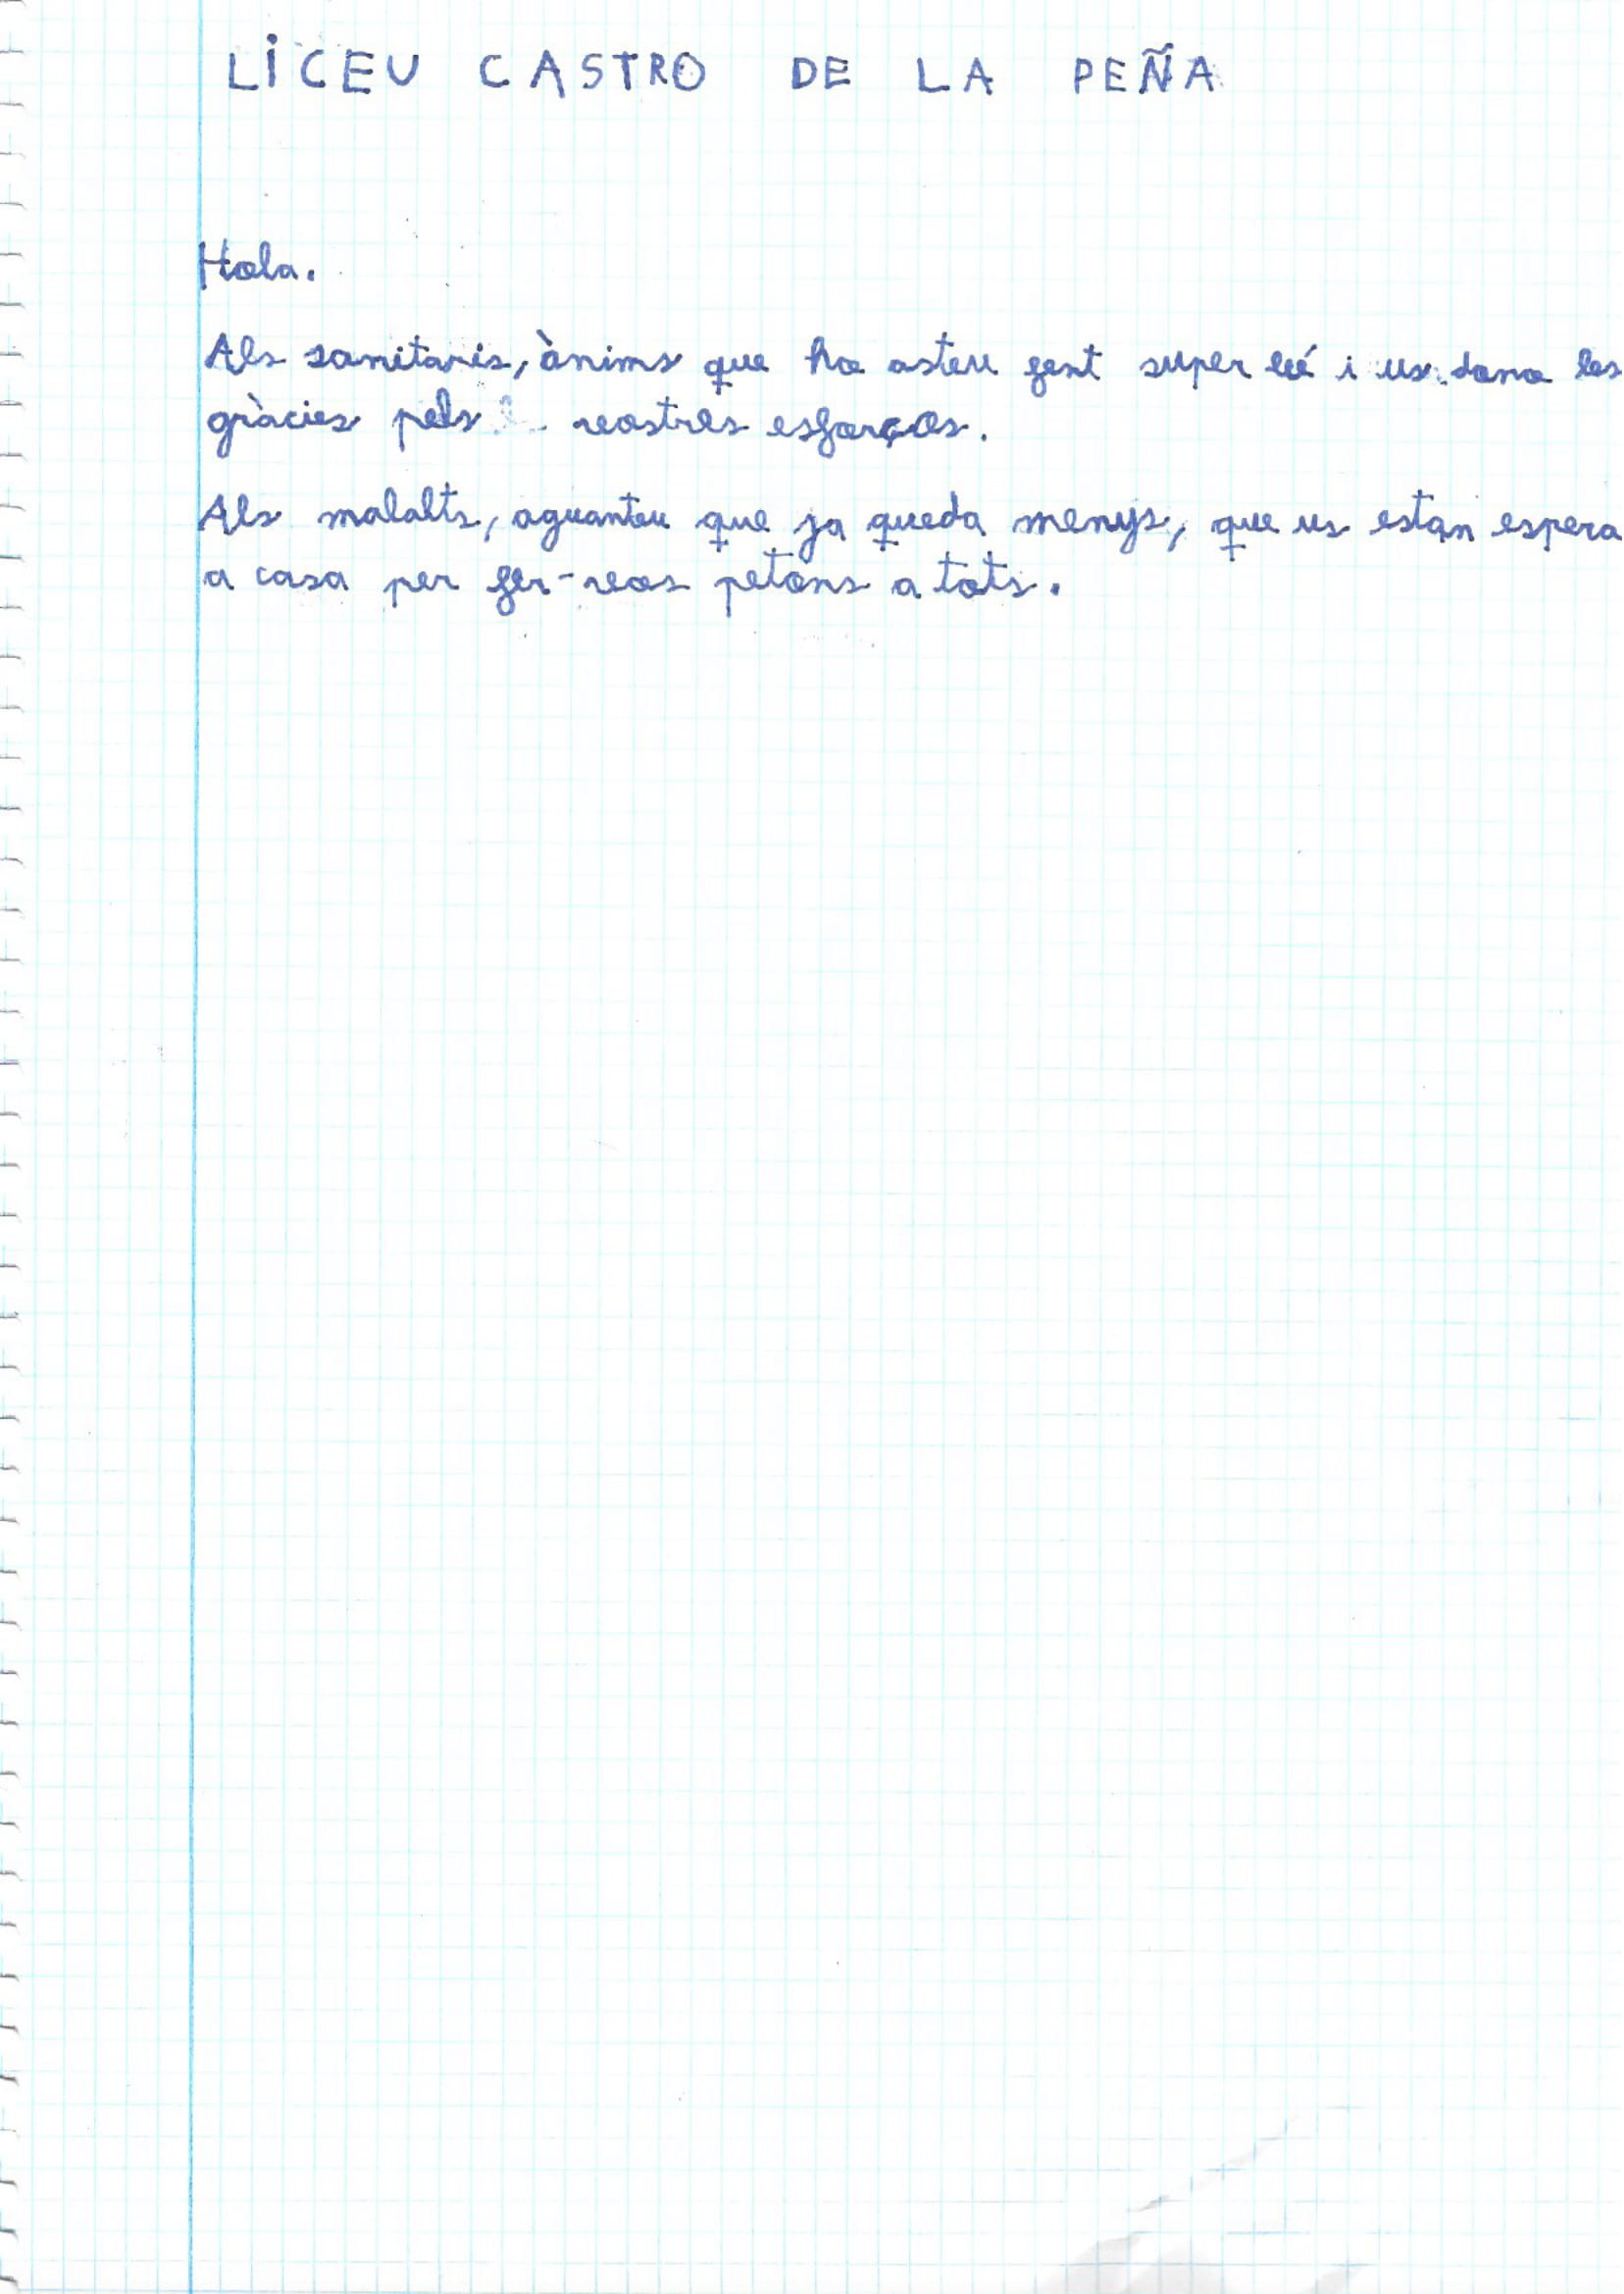 LICEU CASTRO DE LA PEÑA
Hola.
Als sanitaris, ànims que ho esteu fent super bé i us dono les
gràcies pels vostres esforços.
Als malalts, aguanteu que ja queda menys, que us estan espera
a casa per fer-vos petons a tots.